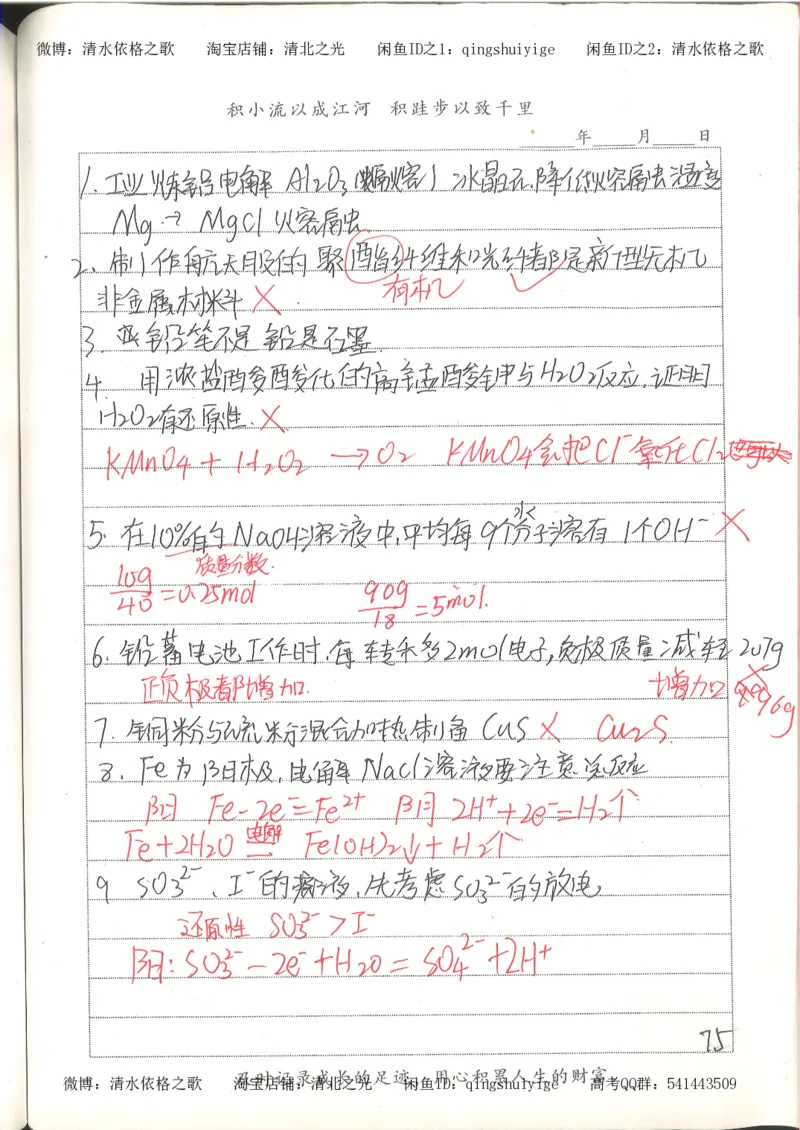 微博：清水依格之歌 淘宝店铺：清北之光 闲鱼ID之1：qingshuiyige 闲鱼ID之2：清水依格之歌
积小流以成江河 积跬步以致千里
年 月 日
1. 工业炼铝电解 Al2O3(熔融) 冰晶石.降低熔融温度
Mg → MgCl 熔融.
2. 制作航天服的聚酯纤维和光纤都是新型无机
非金属材料 ×
有机 ✓
3. 铅笔不是铅是石墨.
4. 用浓盐酸酸化的高锰酸钾与H2O2反应,证明
H2O2有还原性. ×
KMnO4 + H2O2 → O2 KMnO4会把Cl⁻氧化Cl2
5. 在10%的NaOH溶液中,平均每9个水分子溶有1个OH⁻ ×
质量分数.
10g/40 = 0.25mol 90g/18 = 5mol.
6. 铅蓄电池工作时,每转乐多2mol电子,负极质量减轻207g ×
正负极都增加. 增加 96g
7. 铜粉与硫粉混合加热制备CuS × Cu2S.
8. Fe为阳极,电解NaCl溶液要注意总反应
阳 Fe-2e⁻=Fe²⁺ 阴 2H⁺+2e⁻=H2↑
Fe+2H2O 电解= Fe(OH)2↓+H2↑
9 SO3²⁻、I⁻的溶液,先考虑SO3²⁻的放电
还原性 SO3²⁻ > I⁻
阳: SO3²⁻-2e⁻+H2O = SO4²⁻+2H⁺
75
及时记录成长的足迹 用心积累人生的财富
微博：清水依格之歌 淘宝店铺：清北之光 闲鱼ID：qingshuiyige 高考QQ群：541443509